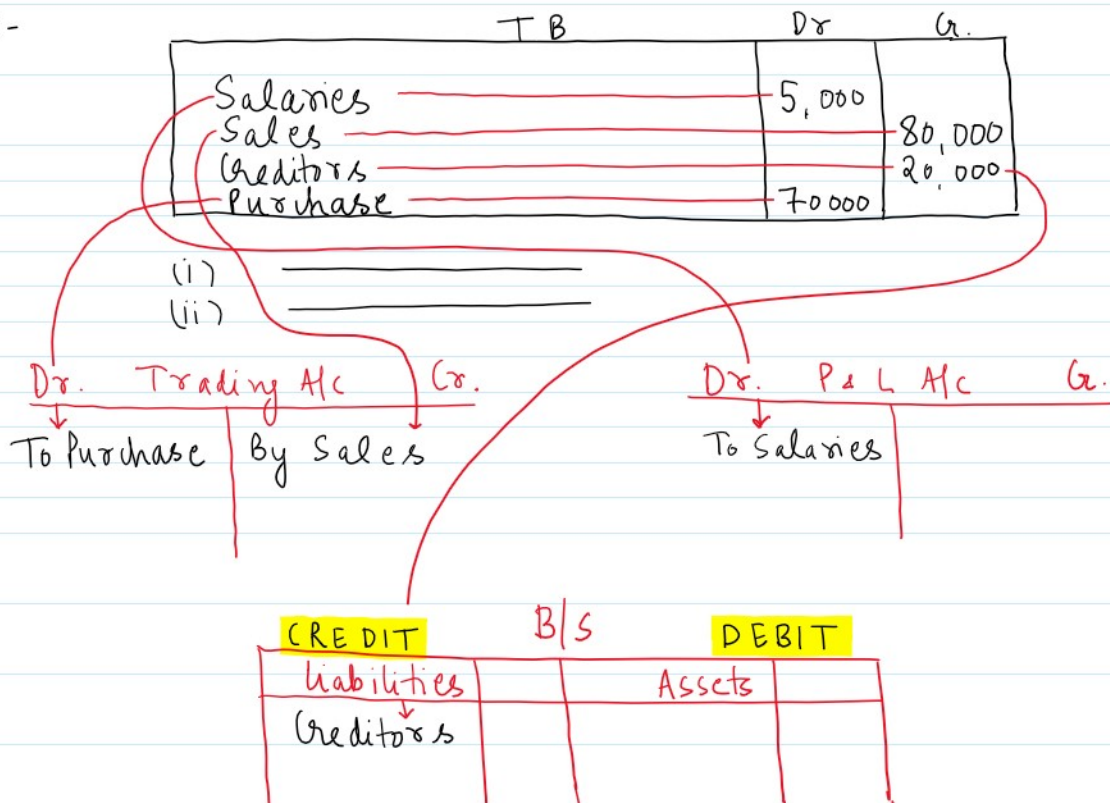 T B Dr Cr.
Salaries 5,000
Sales 80,000
Creditors 20,000
Purchase 70000
(i)
(ii)
Dr. Trading A/c Cr. Dr. P & L A/c Cr.
To Purchase By Sales To Salaries
B/S
CREDIT DEBIT
Liabilities Assets
Creditors